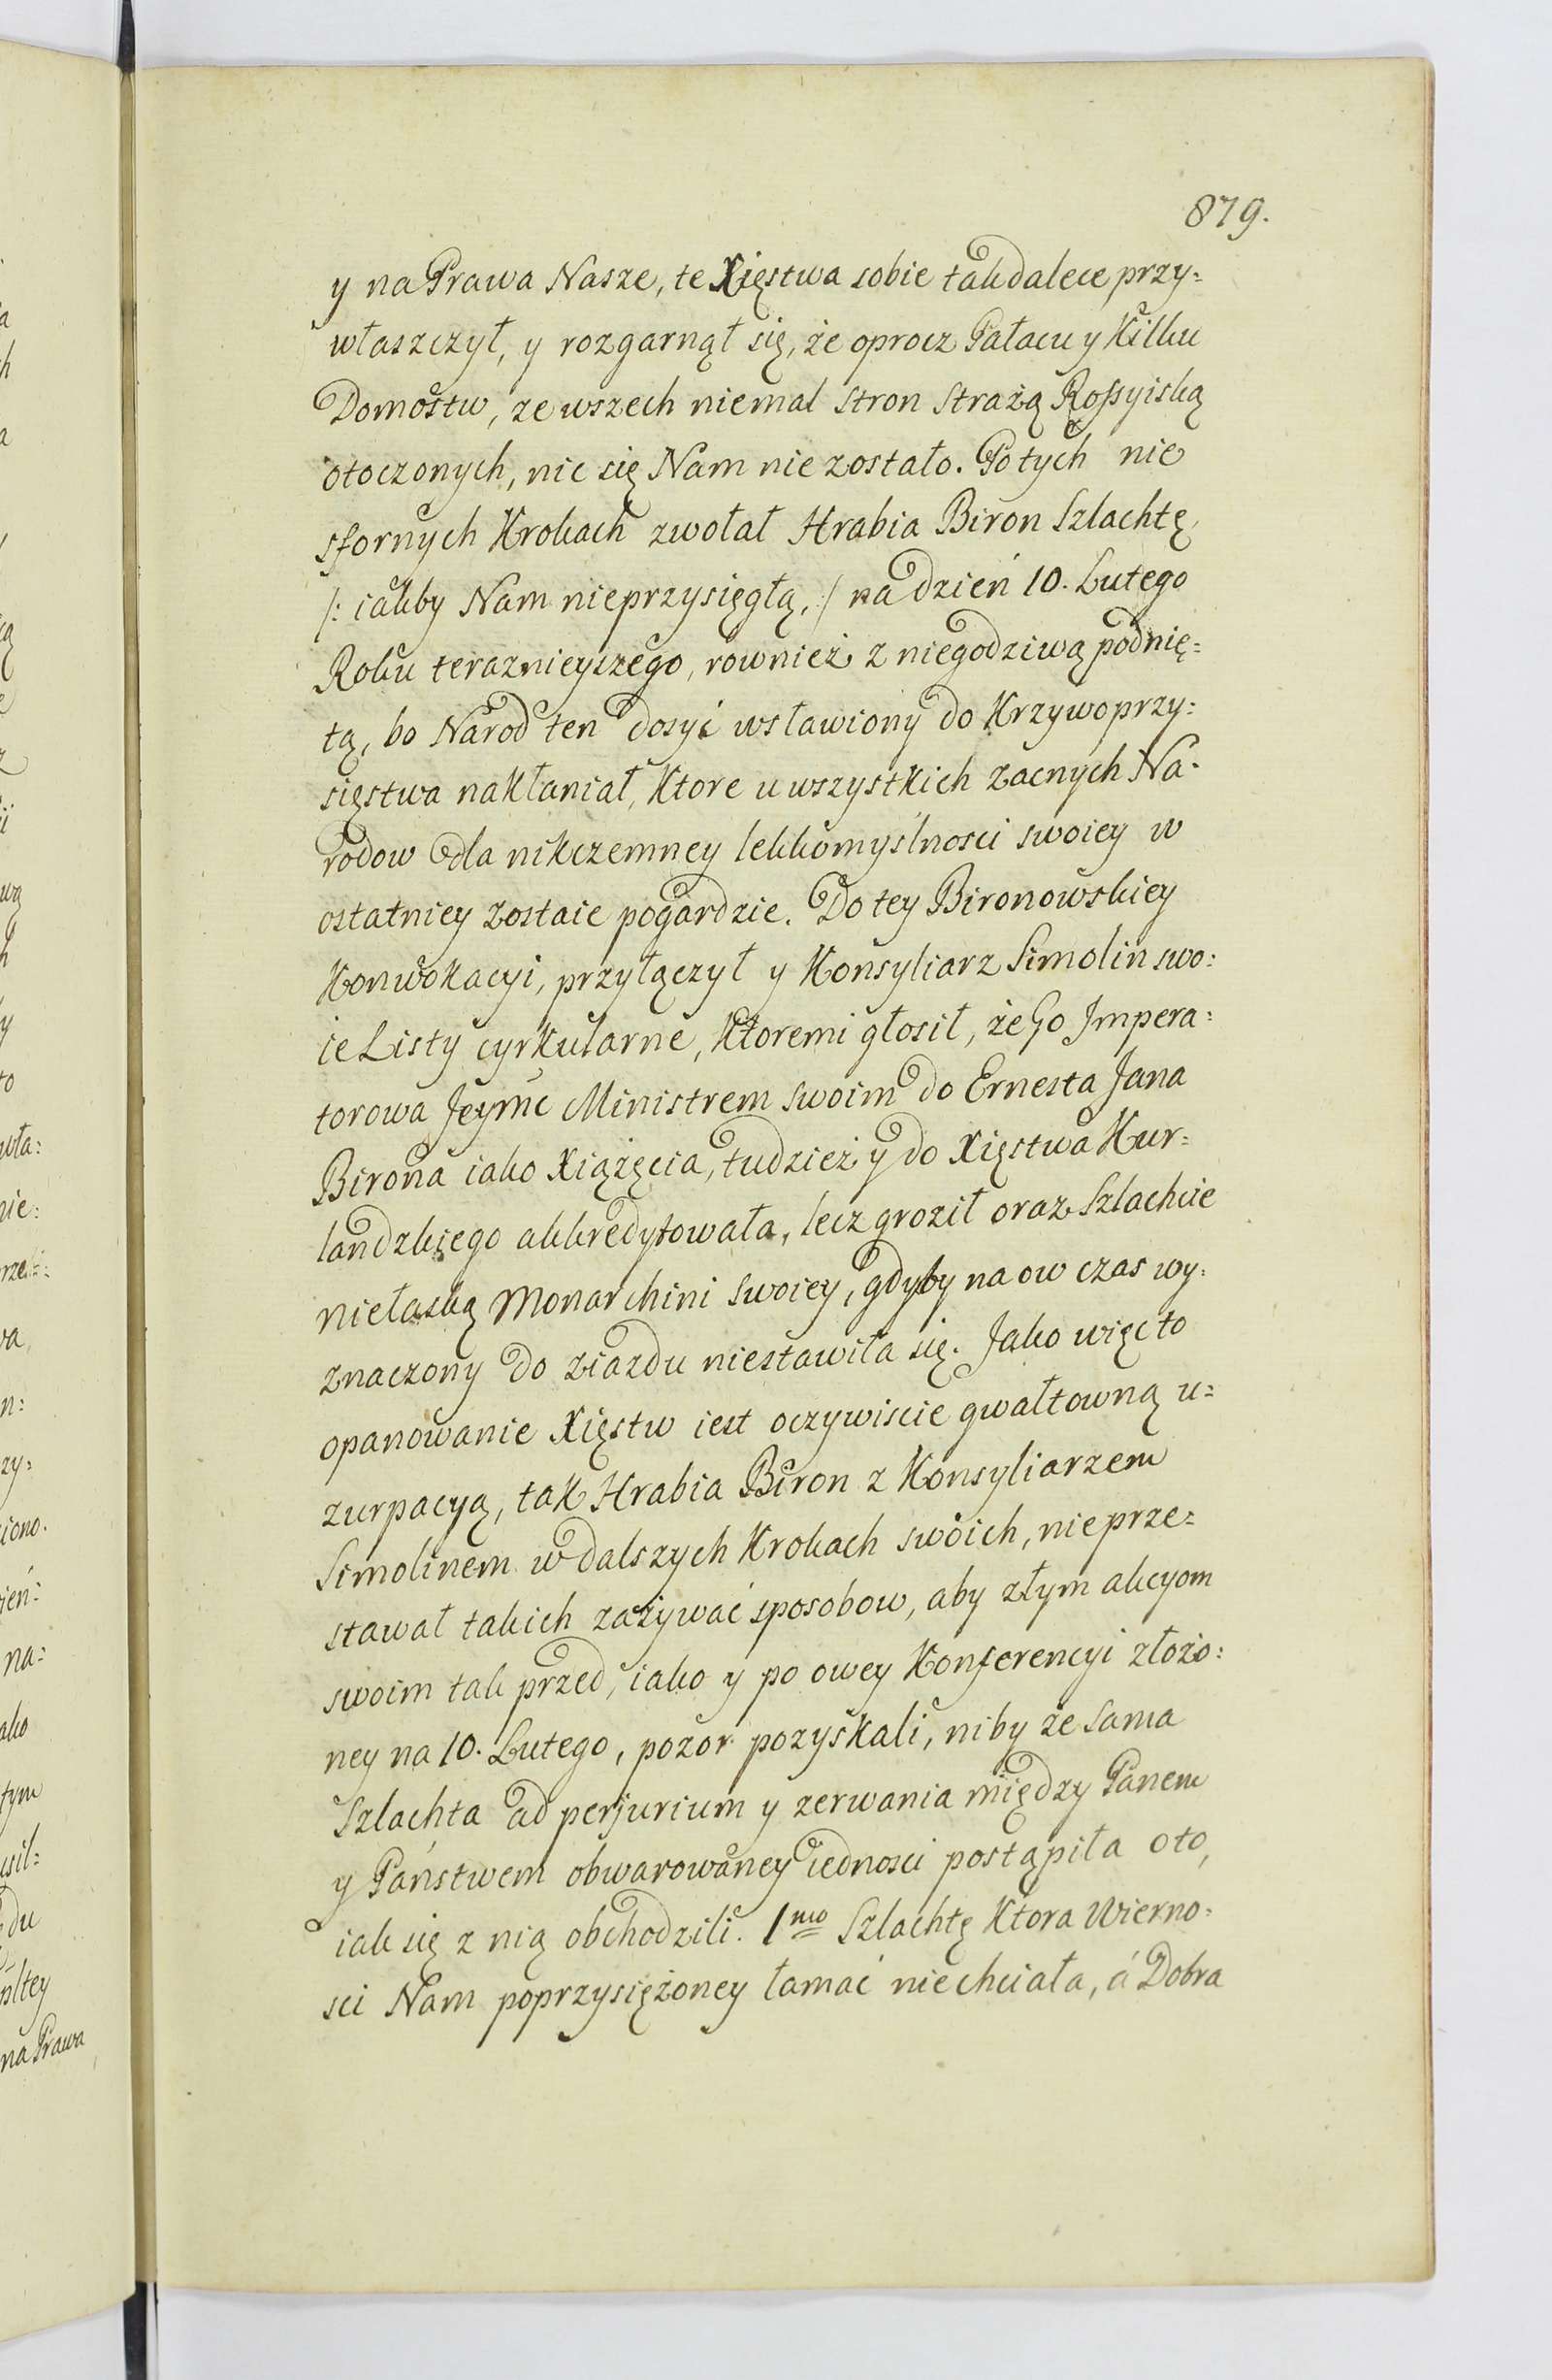 879.
y na Prawa Nasze, te Xięstwa sobie tak dalece przy=
właszczył, y rozgarnął się, że oprocz Pałacu y Kilku
Domostw, ze wszech niemal stron Strażą Rossyiską
otoczonych, nic się Nam nie zostało. Po tych nie
sfornych Krokach zwołał Hrabia Biron Szlachtę,
/: iakby Nam nieprzysięgłą, :/ na dzień 10. Lutego
Roku teraznieyszego, rownież z niegodziwą podnię=
tą, bo Narod ten dosyć wsławiony do Krzywoprzy=
sięstwa nakłaniał, Ktore u wszystkich zacnych Na=
rodow dla nikczemney lekkomyślnosci swoiey w
ostatniey zostaie pogardzie. Do tey Bironowskiey
Konwokacyi, przyłączył y Konsyliarz Simolin swo=
ie Listy cyrkularne, Ktoremi głosił, że Go Impera=
torowa Jeymć Ministrem swoim do Ernesta Jana
Birona iako Xiążęcia, tudzież y do Xięstwa Kur=
landzkiego akkredytowała, lecz groził oraz Szlachcie
niełaską Monarchini swoiey, gdyby na ow czas wy=
znaczony do ziazdu niestawiła się. Jako więc to
opanowanie Xięstw iest oczywiscie gwałtowną u=
zurpacyą, tak Hrabia Biron z Konsyliarzem
Simolinem w dalszych Krokach swoich, nie prze=
stawał takich zażywać sposobow, aby złym akcyom
swoim tak przed, iako y po owey Konferencyi złożo=
ney na 10. Lutego, pozor pozyskali, niby że sama
Szlachta ad perjurium y zerwania między Panem
y Państwem obwarowaney iednosci postąpiła oto,
iak się z nią obchodzili. 1mo Szlachtę Ktora Wierno=
sci Nam poprzysiężoney łamać niechciała, á Dobra
na Prawa